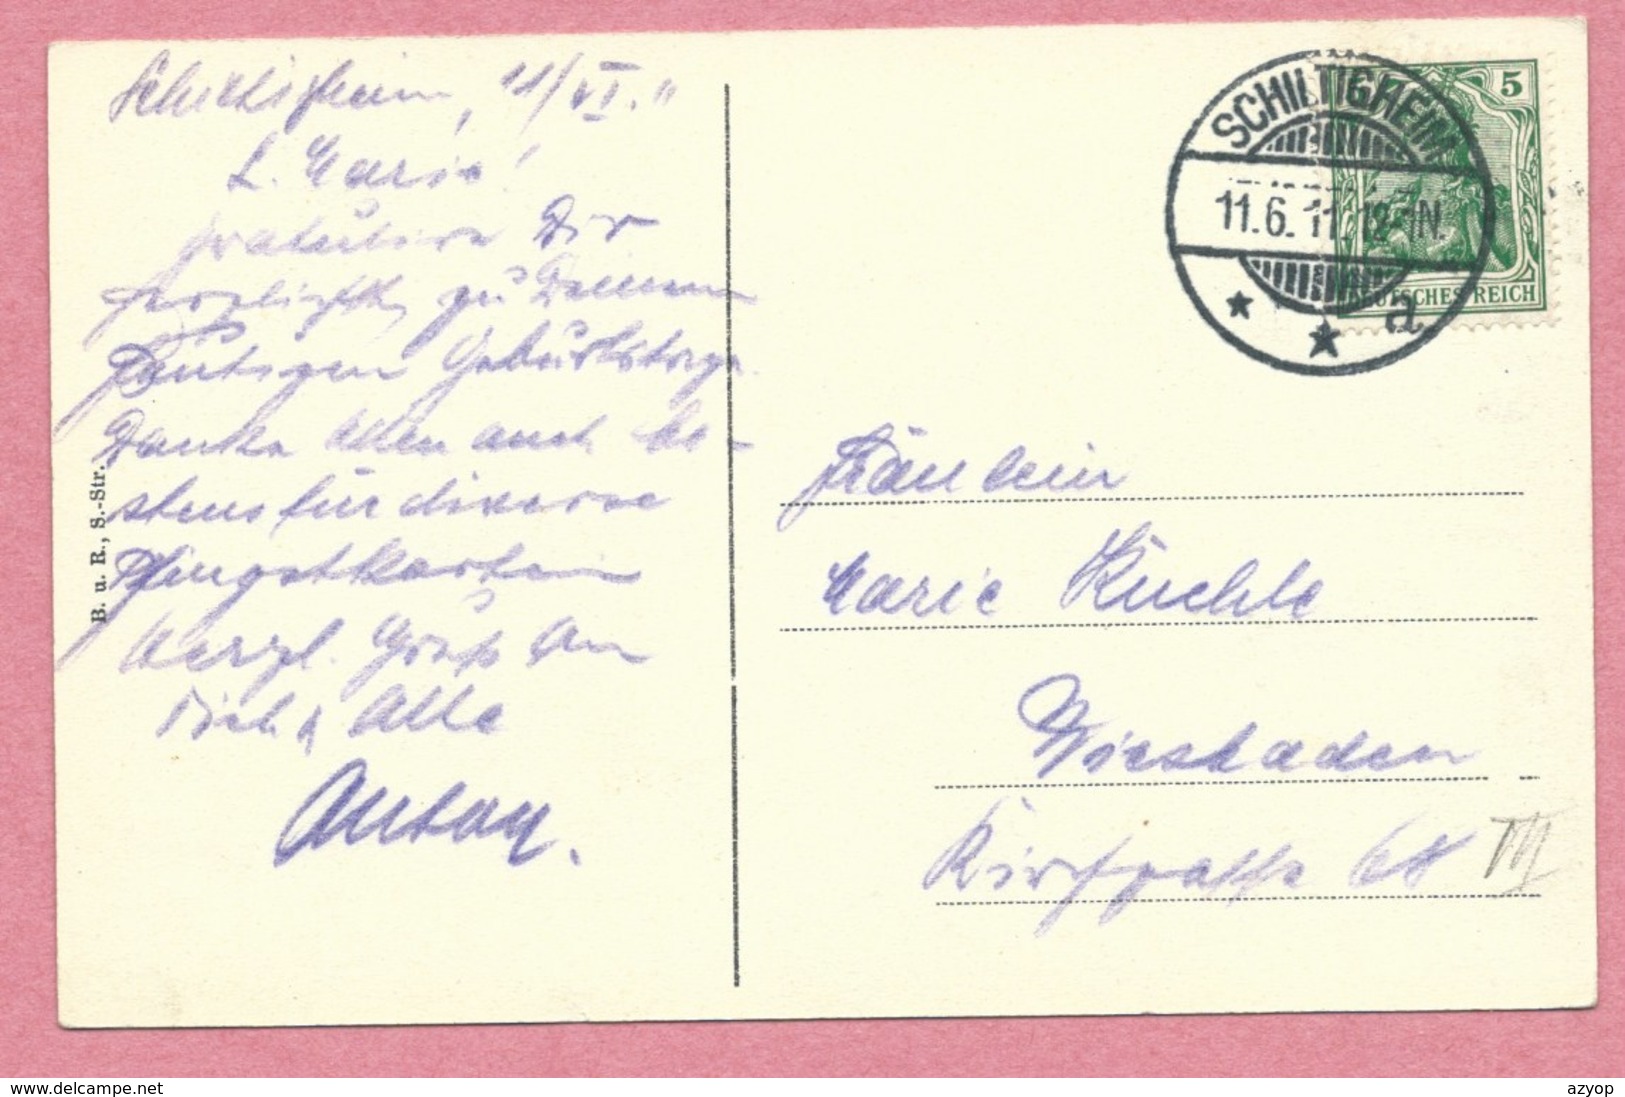 Schiltigheim, 11/VI. 11
L. Marie!
gratuliere Dir
herzlichst zu Deinem
heutigen Geburtstage.
Danke Allen auch be-
stens für diverse
Pfingstkarten
Herzl. Gruß an
Dich & Alle
Anton.
B. u. R., S.-Str.
SCHILTIGHEIM
11.6.11. 12-1N.
a
5
DEUTSCHES REICH
Fräulein
Marie Küchle
Wiesbaden
Kirchgasse 68
www.delcampe.net
azyop